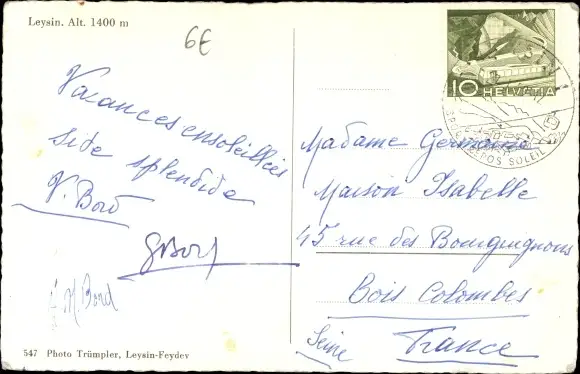 Leysin. Alt. 1400 m
6€
Vacances ensoleillées
site splendide
Y. Bord
GBord
M. Bord
547 Photo Trümpler, Leysin-Feydey
10 HELVETIA
REPOS SOLEIL
Madame Germaine
Maison Isabelle
45 rue des Bourguignons
Bois Colombes
Seine France